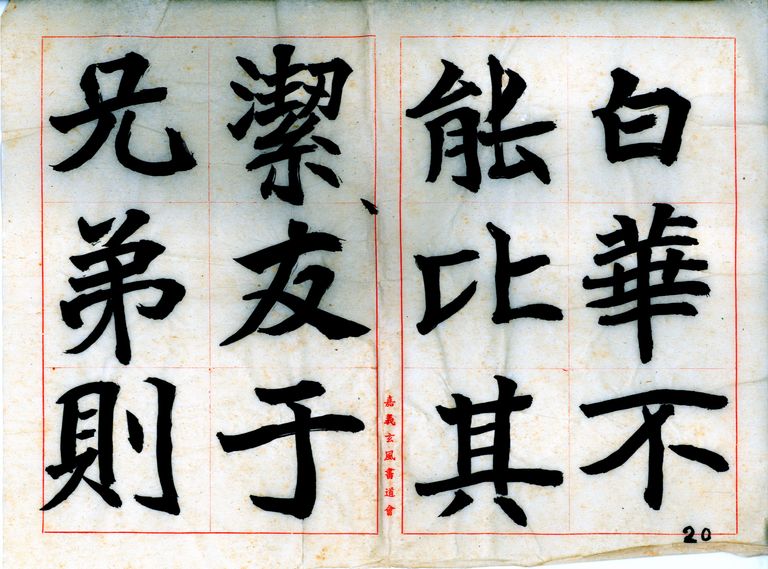 白華不
能比其
潔友于
兄弟則
嘉義玄風書道會
20